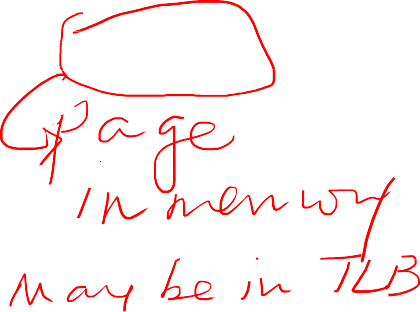 page
in memory
may be in TLB